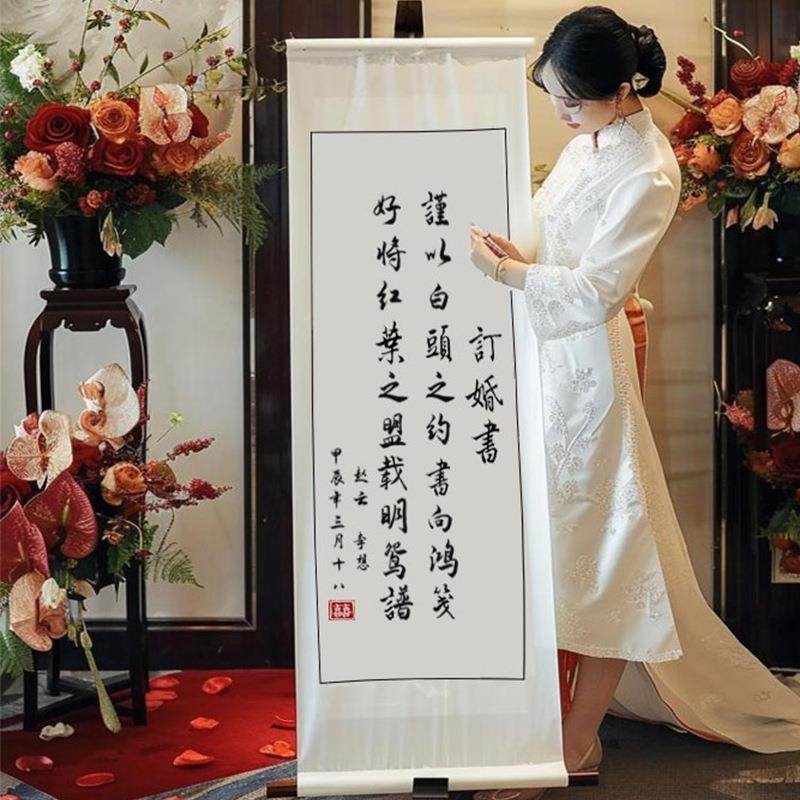 訂婚書
謹以白頭之约書向鴻笺
好将红葉之盟载明鴛譜
赵云 李想
甲辰年三月十八
囍